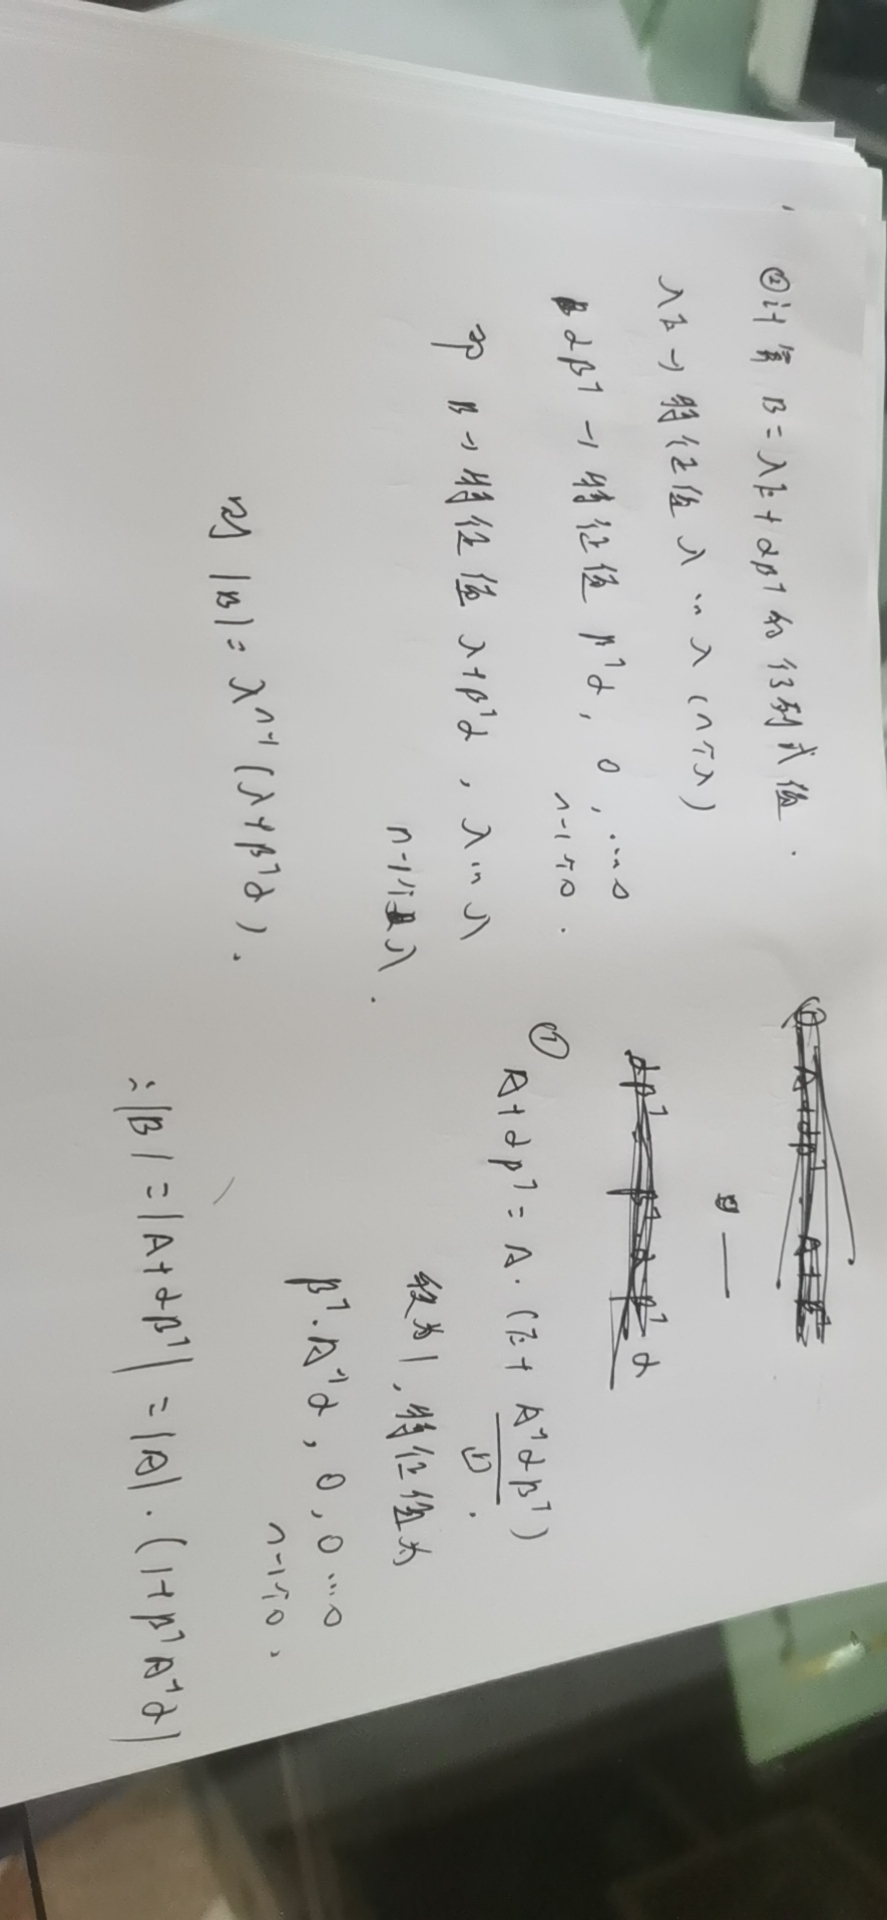 ②计算 B=λE+αβᵀ的行列式值.
λE→特征值 λ…λ (n个λ)
αβᵀ→特征值 βᵀα, 0, …0
n-1个0.
即 B→特征值 λ+βᵀα, λ…λ
n-1个λ.
则 |B|=λⁿ⁻¹(λ+βᵀα).
①
A+αβᵀ=A·(E+A⁻¹αβᵀ)
秩为1,特征值为
βᵀ·A⁻¹α, 0, 0…0
n-1个0.
∴|B|=|A+αβᵀ|=|A|·(1+βᵀA⁻¹α)